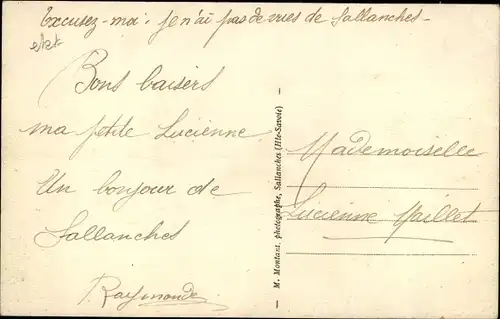 Excusez-moi, je n'ai pas de vues de Sallanches-
Bons baisers
ma petite Lucienne
Un bonjour de
Sallanches
Raymonde
M. Montant, photographe, Sallanches (Hte-Savoie)
Mademoiselle
Lucienne Maillet